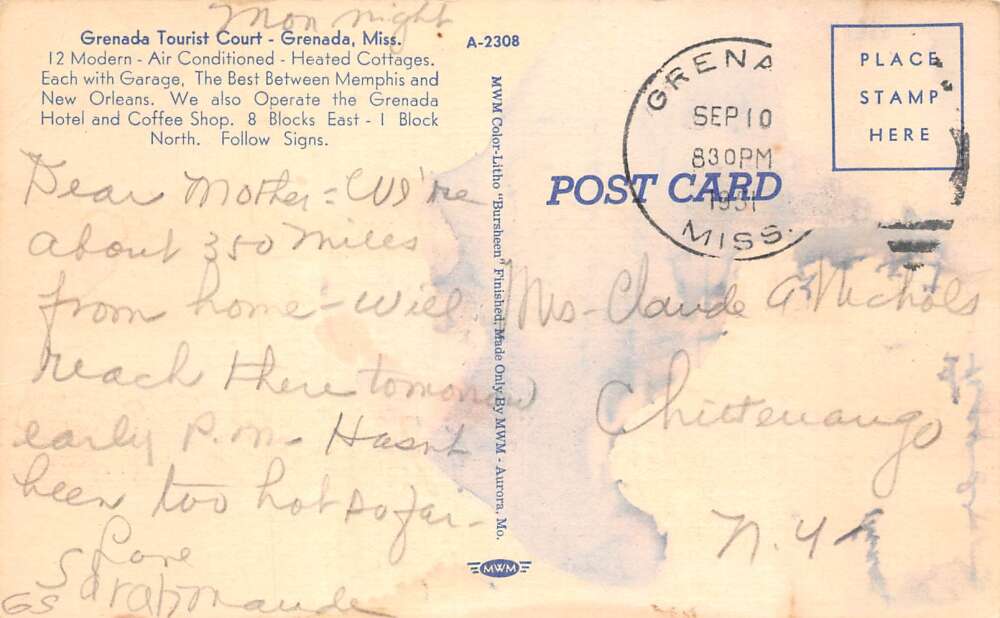 Mon night
Grenada Tourist Court - Grenada, Miss.
12 Modern - Air Conditioned - Heated Cottages.
Each with Garage, The Best Between Memphis and
New Orleans. We also Operate the Grenada
Hotel and Coffee Shop. 8 Blocks East - 1 Block
North. Follow Signs.
Dear Mother - We're
about 350 miles
from home - will
reach there tomorrow
early p.m. Hasn't
been too hot so far -
Love
Sarahmaude
GS
A-2308
MWM Color-Litho "Bursheen" Finished. Made Only By MWM - Aurora, Mo.
MWM
POST CARD
GRENA
SEP 10
830PM
1951
MISS.
PLACE
STAMP
HERE
Mrs - Claude A Nichols
Chittenango
N.Y-